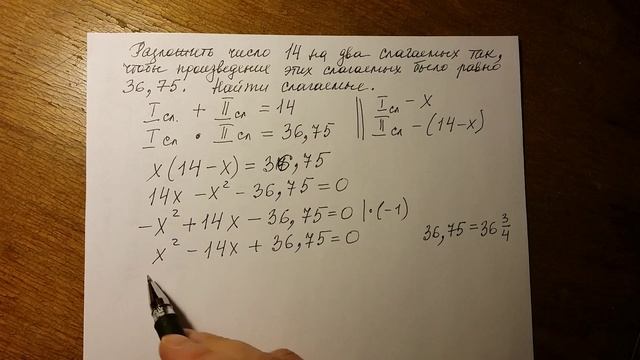 Разложить число 14 на два слагаемых так,
чтобы произведение этих слагаемых было равно
36,75. Найти слагаемые.
I сл. + II сл = 14
I сл. • II сл = 36,75
I сл - x
II сл - (14-x)
x(14-x) = 36,75
14x - x² - 36,75 = 0
-x² + 14x - 36,75 = 0 |·(-1)
x² - 14x + 36,75 = 0
36,75 = 36 3/4